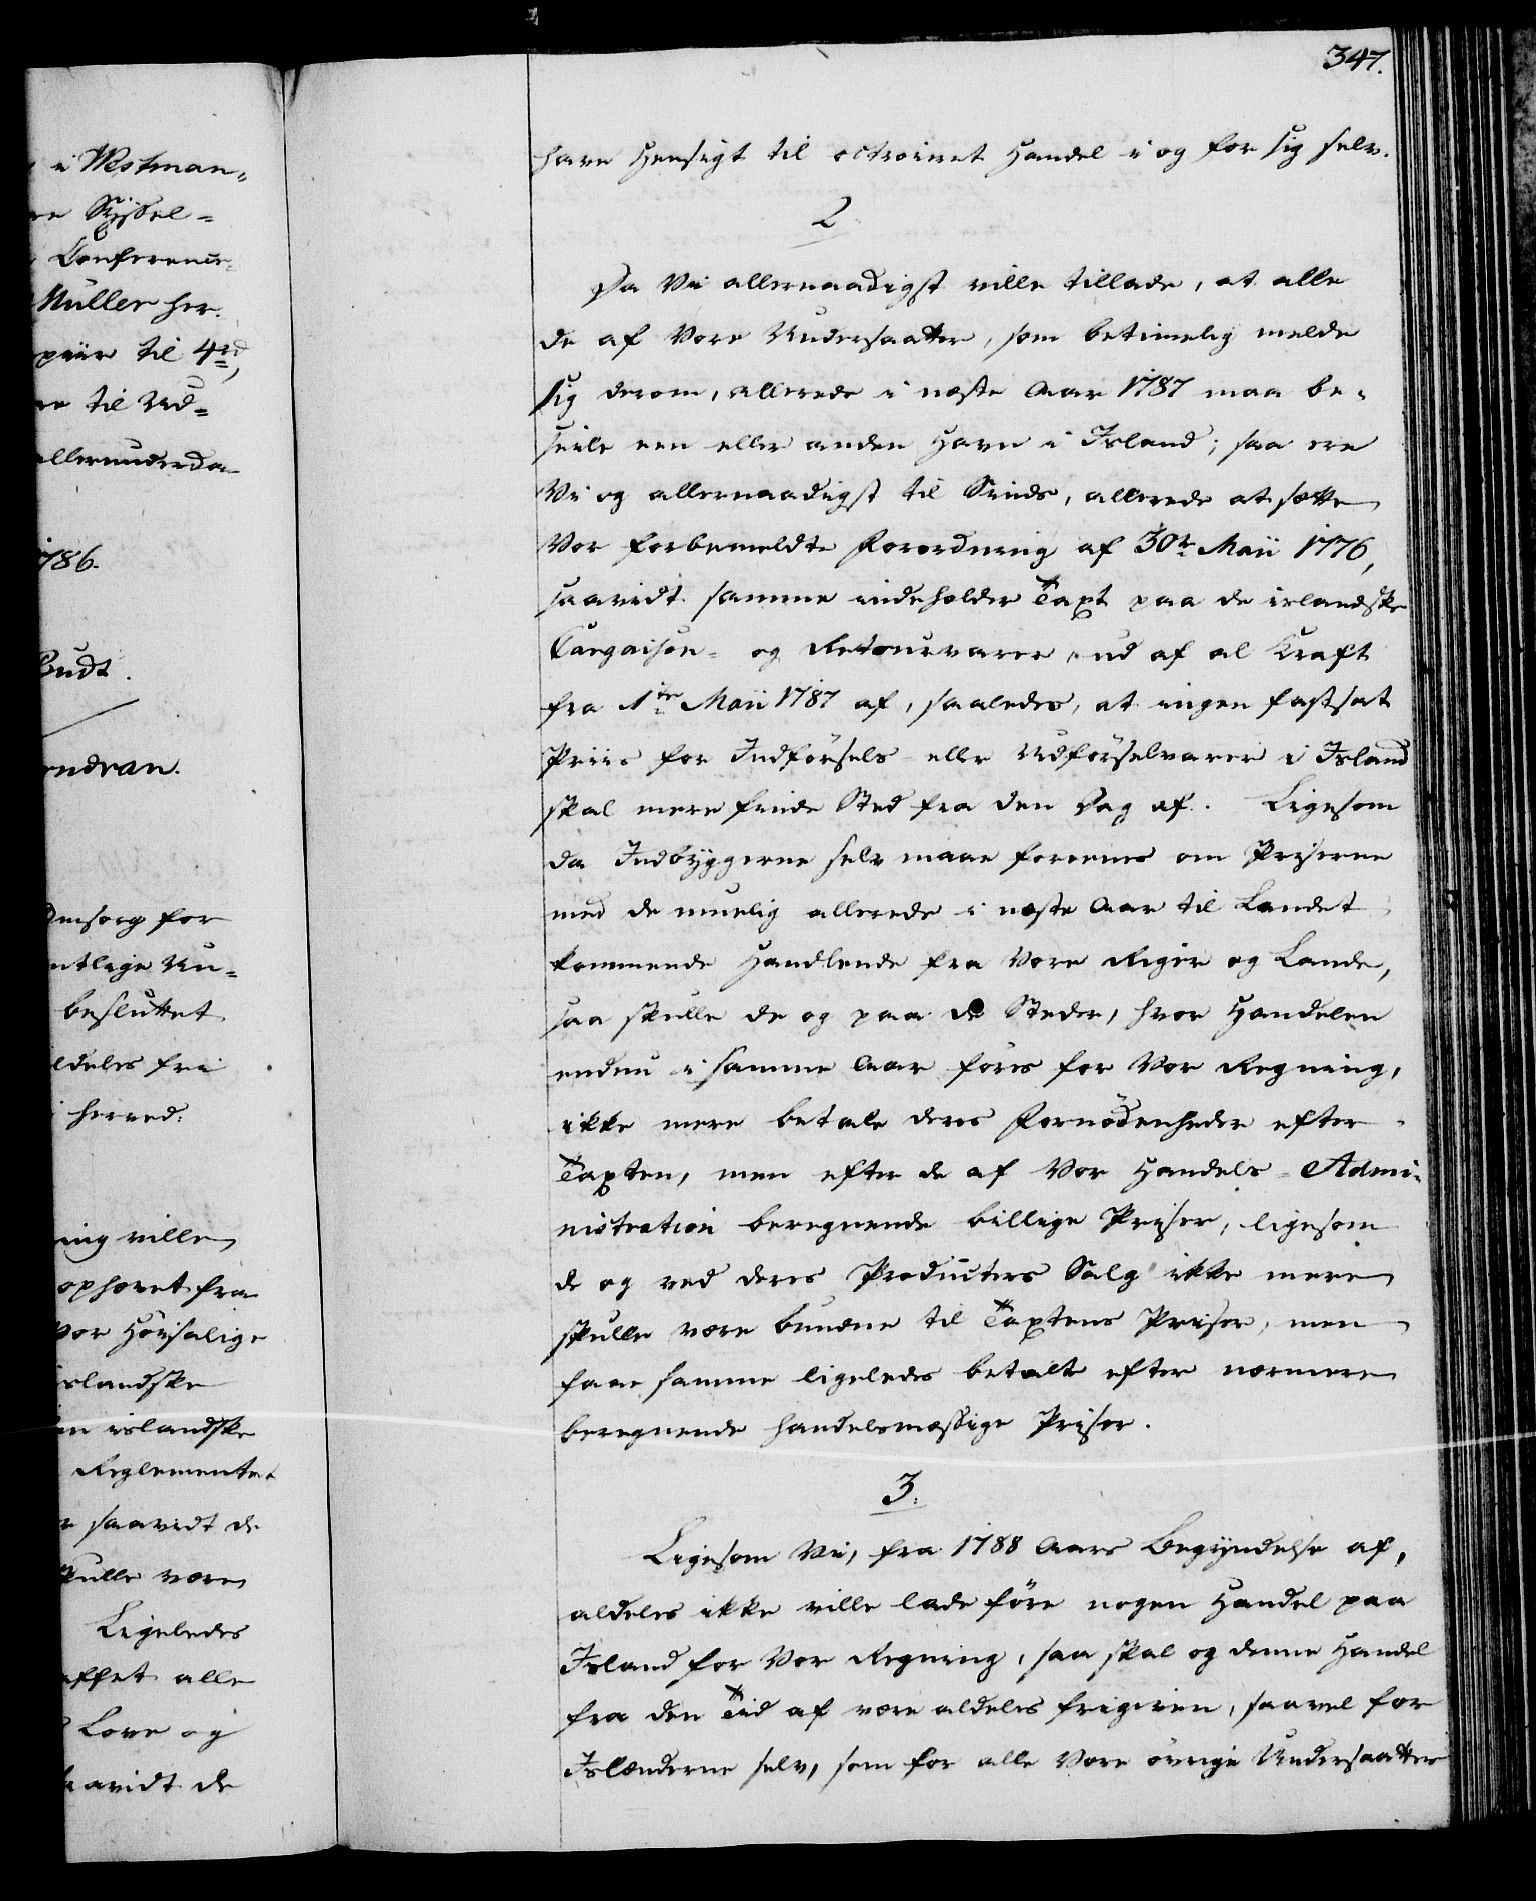 347.
have Hensigt til octroieret Handel i og for sig selv.
2.
Da Vi allernaadigst ville tillade, at alle
de af Vore Undersaatter, som betimelig melde
sig derom, allerede i næste Aar 1787 maa be-
seile een eller anden Havn i Island; saa ere
Vi og allernaadigst til Sinds, allerede at sætte
Vor forbemeldte Forordning af 30te Maii 1776,
saavidt samme indeholder Taxt paa de islandske
Cargaison- og Retourvarer, ud af al Kraft
fra 1te Maii 1787 af, saaledes, at ingen fastsat
Priis for Indførsels- eller Udførselvarer i Island
skal mere finde Sted fra den Dag af. Ligesom
da Indbyggerne selv maae foreenes om Priserne
med de muelig allerede i næste Aar til Landet
kommende Handlende fra Vore Riger og Lande,
saa skulle de og paa de Steder, hvor Handelen
endnu i samme Aar føres for Vor Regning,
ikke mere betale deres Fornødenheder efter
Taxten, men efter de af Vor Handels-Admi-
nistration beregnende billige Priser, ligesom
de og ved deres Producters Salg ikke mere
skulle være bundne til Taxtens Priser, men
faae samme ligeledes betalt efter nærmere
beregnende handelsmæssige Priser.
3.
Ligesom Vi, fra 1788 Aars Begyndelse af,
aldeles ikke ville lade føre nogen Handel paa
Island for Vor Regning, saa skal og denne Handel
fra den Tid af være aldeles frigiven, saavel for
Islænderne selv, som for alle Vore øvrige Undersaatter
i Westman-
re Syssel-
Conference-
Müller her.
piir til 4rd,
re til Ud-
allerunderda
1786.
Budt.
endran.
Omsorg for
ntlige Un-
besluttet
ldeles fri
i herved.
ning ville
ophævet fra
Vor Høisalige
islandske
en islandske
Reglementet
r saavidt de
skulle være
Ligeledes
affet alle
Love og
saavidt de